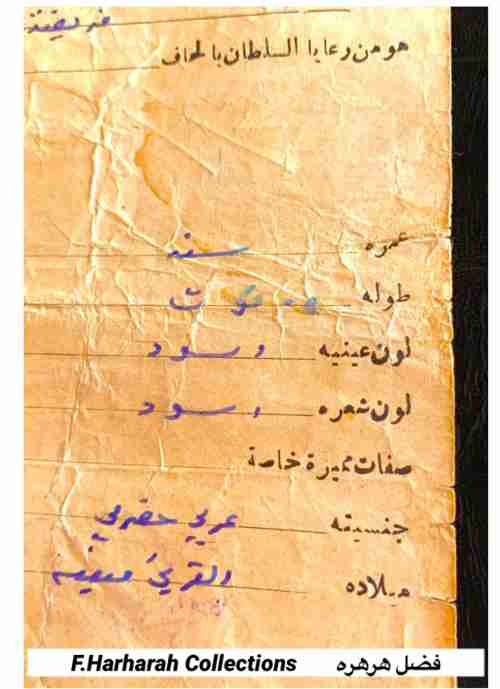 هو من رعايا السلطان بالحاف
عمره سنه
طوله فوت
لون عينيه اسود
لون شعره اسود
صفات مميزة خاصة
جنسيته عربي حضرمي
ميلاده
F.Harharah Collections فضل هرهره